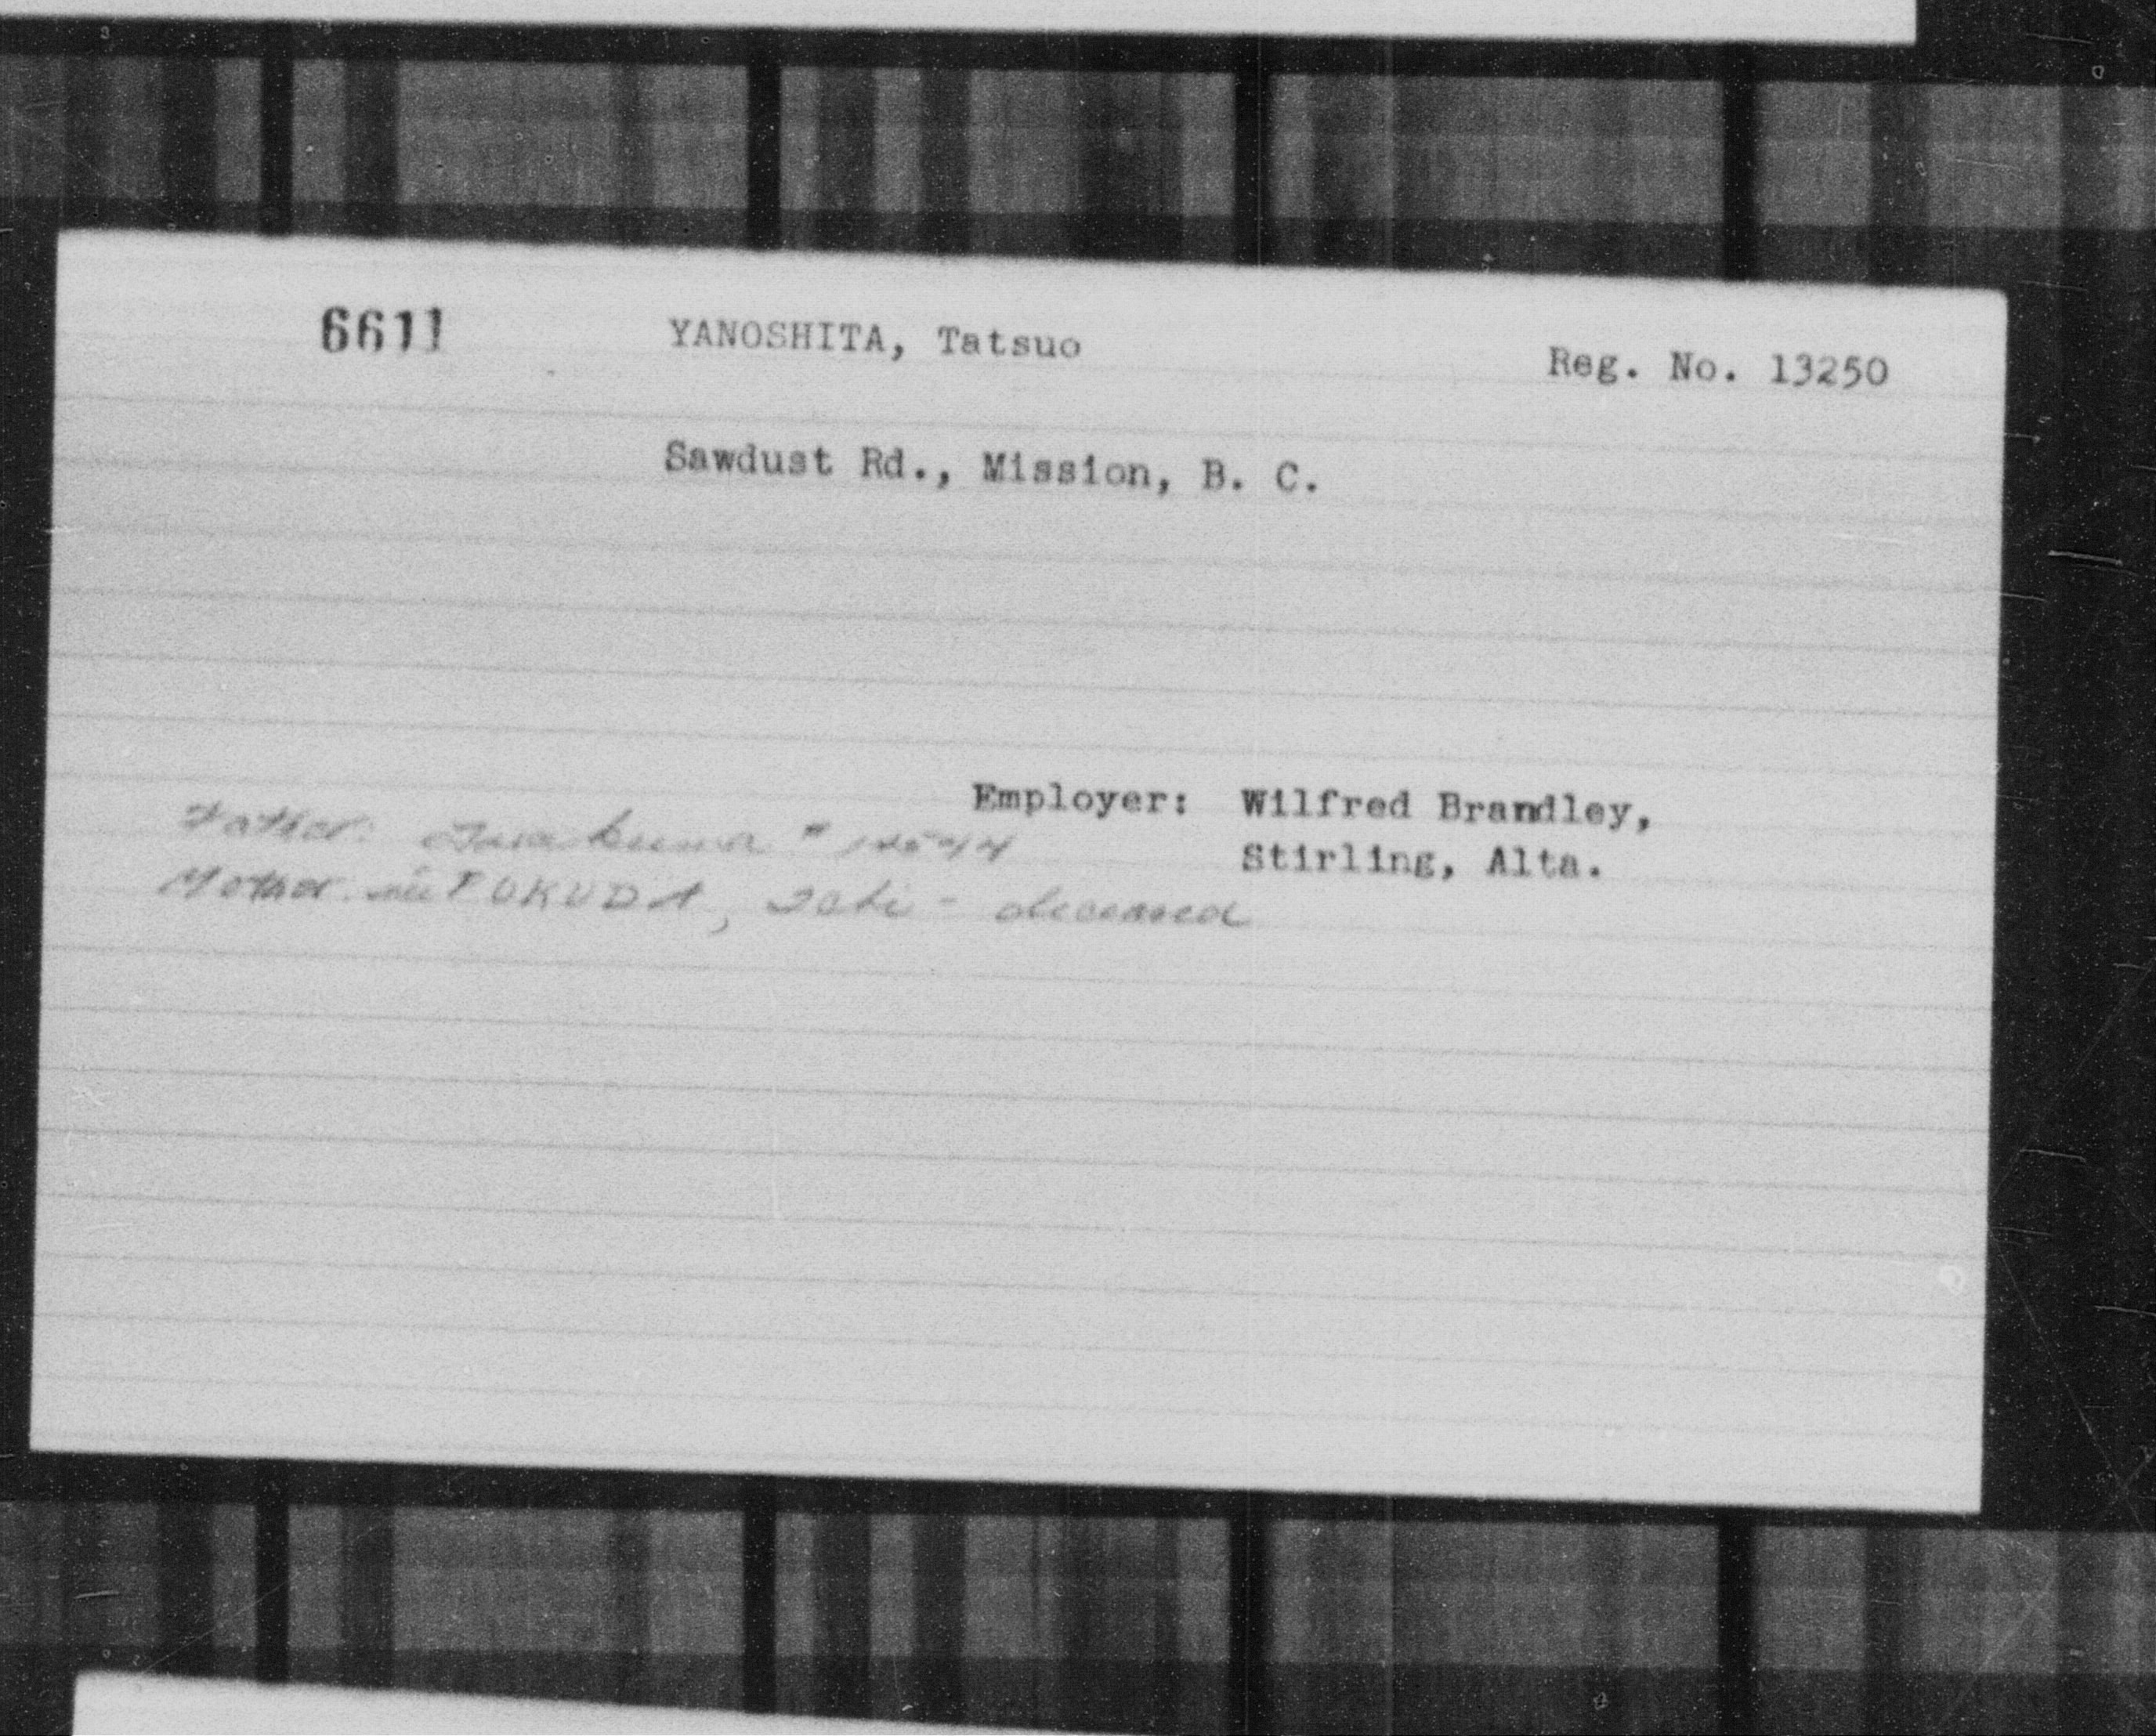 6611 YANOSHITA, Tatsuo Reg. No. 13250
Sawdust Rd., Mission, B. C.
Employer: Wilfred Brandley,
Stirling, Alta.
Father: #
Mother: née TOKUDA, - deceased